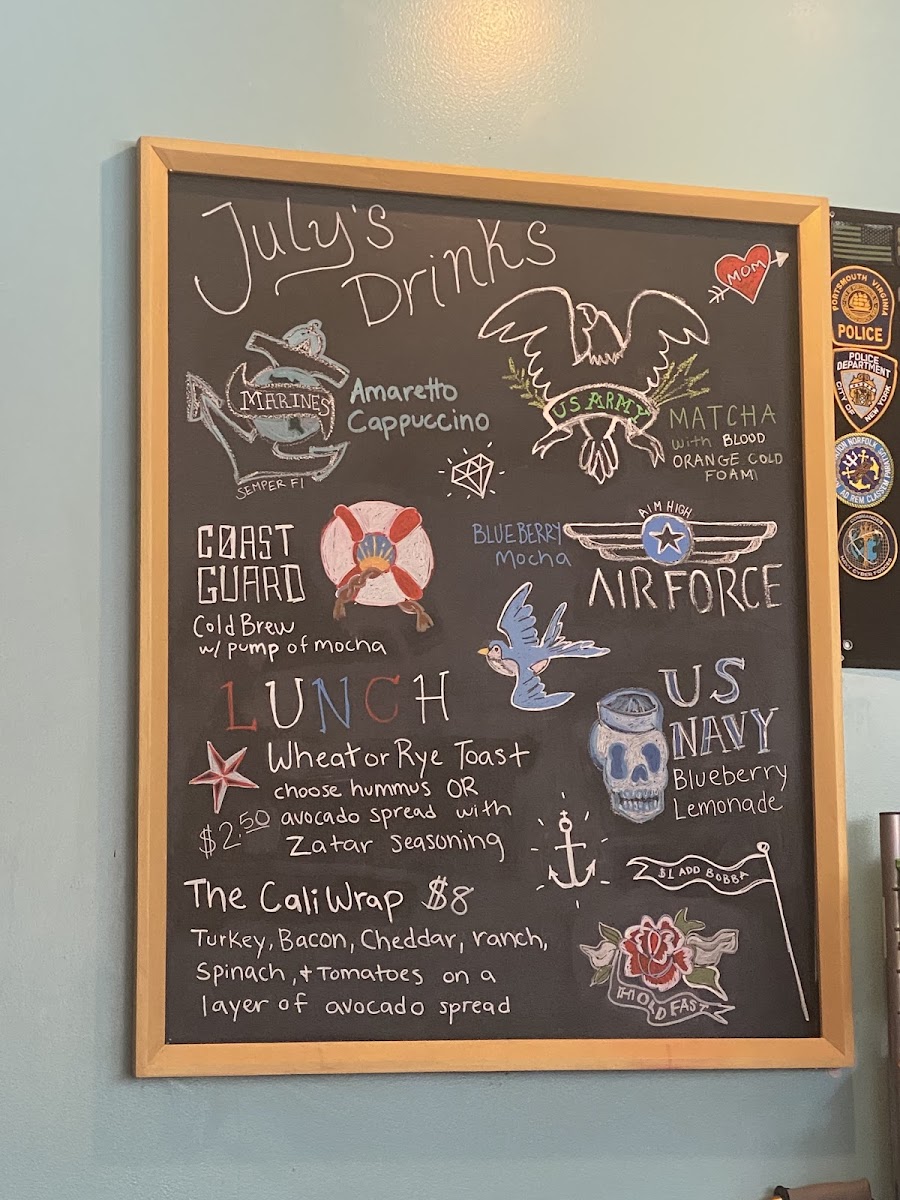 July's
Drinks
MOM
MARINES
SEMPER FI
Amaretto
Cappuccino
US ARMY
MATCHA
with BLOOD
ORANGE COLD
FOAM
COAST
GUARD
Cold Brew
w/ pump of mocha
BLUEBERRY
Mocha
AIM HIGH
AIR FORCE
LUNCH
Wheat or Rye Toast
choose hummus OR
avocado spread with
$2.50
Zatar seasoning
US
NAVY
Blueberry
Lemonade
$1 ADD BOBBA
The Cali Wrap $8
Turkey, Bacon, Cheddar, ranch,
Spinach, + Tomatoes on a
layer of avocado spread
HOLD FAST
PORTSMOUTH VIRGINIA
POLICE
POLICE
DEPARTMENT
CITY OF NEW YORK
NORFOLK
AD REM CLASSEM PARATUS
CYBER FORCES